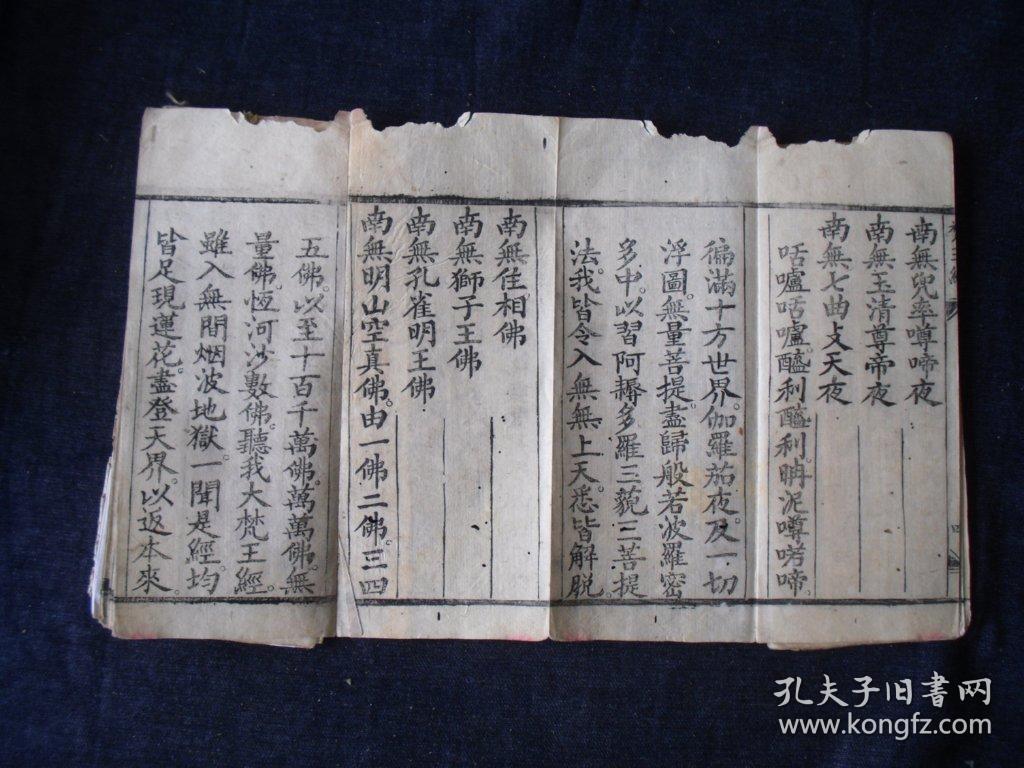 南無兜率噂啼夜
南無玉清尊帝夜
南無七曲文天夜
咶嚧咶嚧。醯利醯利。呥泥噂喏啼。
徧滿十方世界。伽羅茄夜。及一切
浮圖。無量菩提。盡歸般若波羅密
多中。以習阿耨多羅三藐三菩提
法。我皆令入無無上天。悉皆解脱。
南無住相佛
南無獅子王佛
南無孔雀明王佛
南無明山空真佛。由一佛二佛。三四
五佛。以至十百千萬佛。萬萬佛。無
量佛。恆河沙數佛。聽我大梵王經。
雖入無間烟波地獄。一聞是經。均
皆足現蓮花。盡登天界。以返本來。
四
孔夫子旧書网
www.kongfz.com